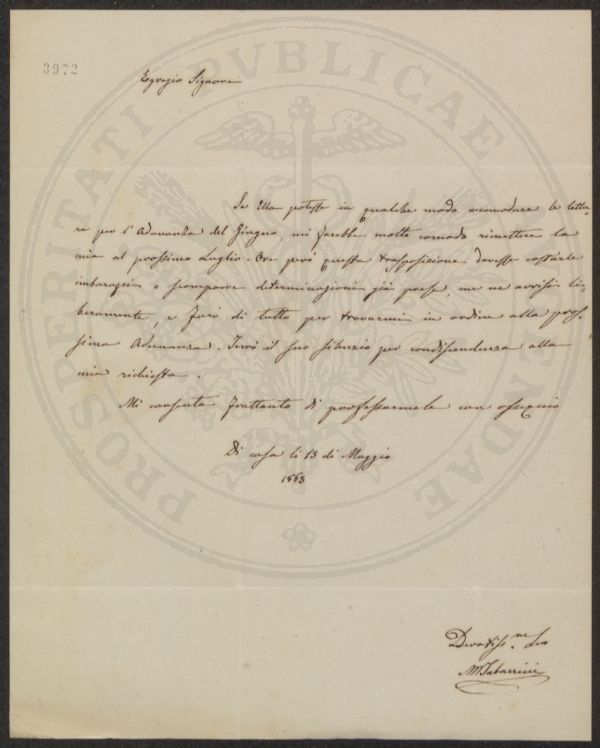 3972
Egregio Signore
Se Ella potesse in qualche modo accomodare le lettu-
re per l'Adunanza del Giugno, mi sarebbe molto comodo rimettere la
mia al prossimo Luglio. Ove però questa trasposizione dovesse costarle
imbarazzi o scomporre determinazioni già prese, me ne avvisi li-
beramente, e farò di tutto per trovarmi in ordine alla pros-
sima Adunanza. Terrò il suo silenzio per condiscendenza alla
mia richiesta.
Mi consenta frattanto di professarmele con ossequio
Di casa li 13 di Maggio
1863
Devotiss.me Suo
M Tabarrini
PROSPERITATI PVBLICAE